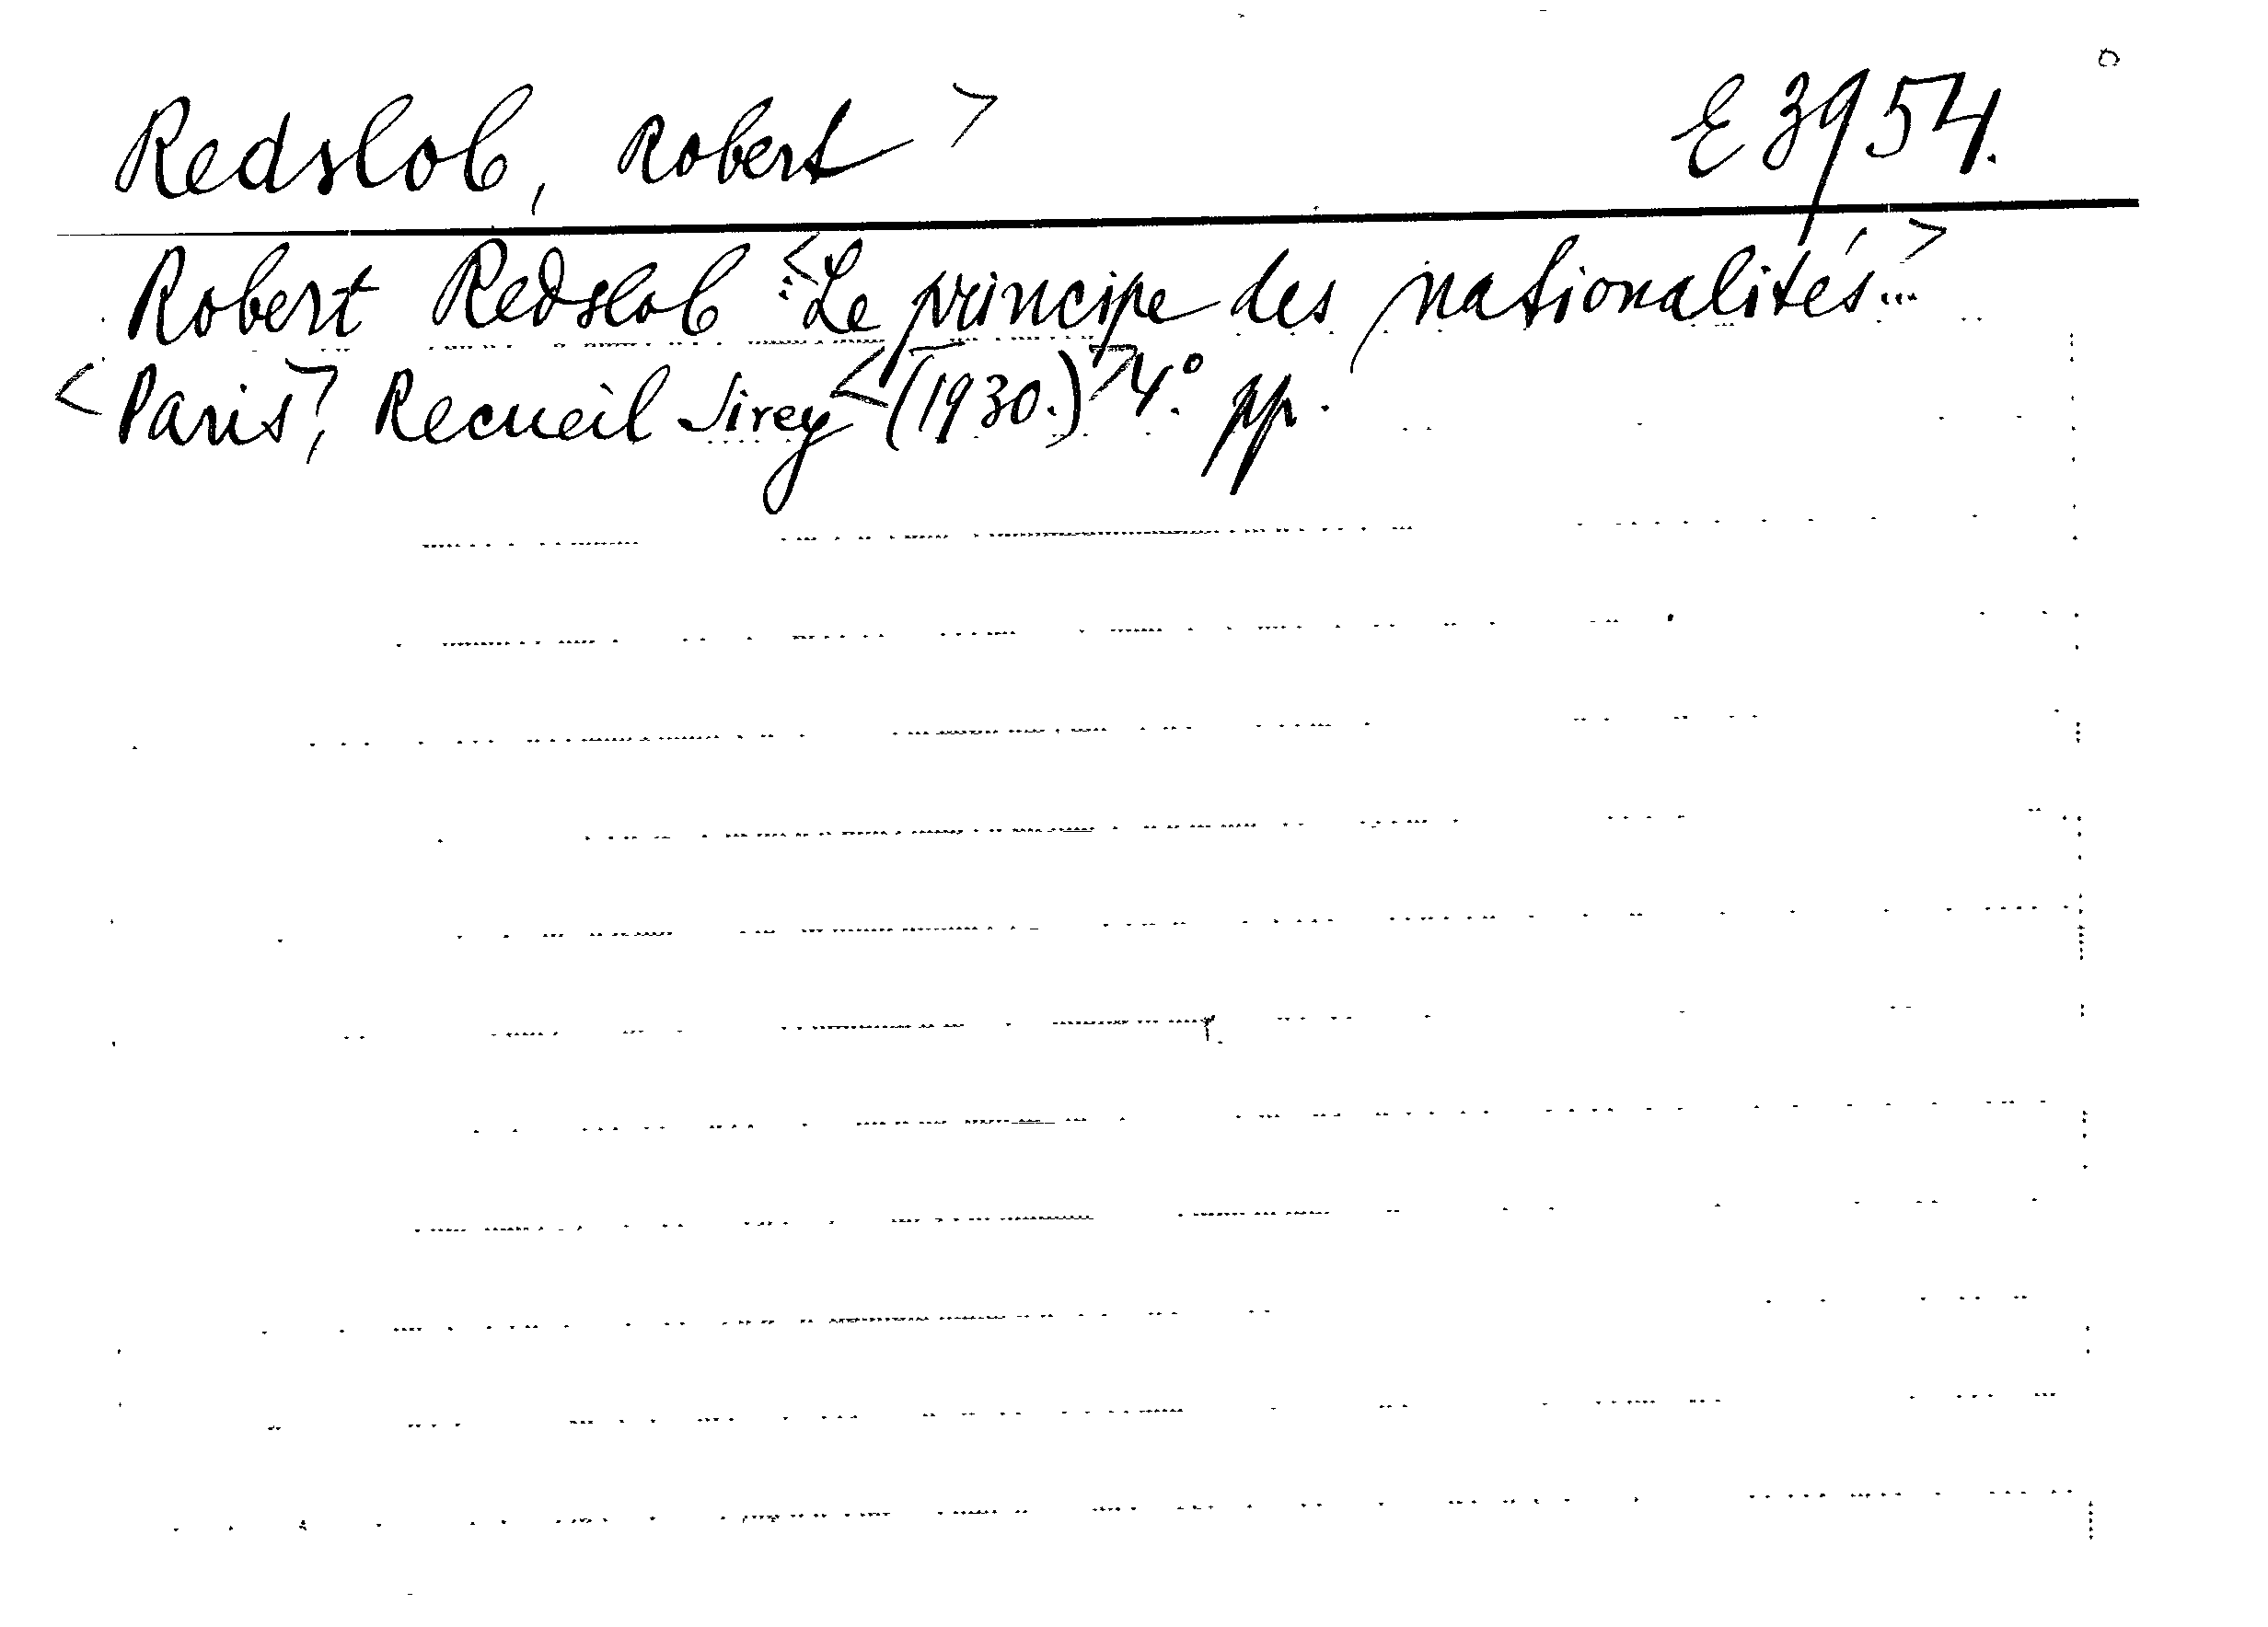 Redslob, Robert > E 3954.
Robert Redslob <: Le principe des nationalités...>
<Paris>, Recueil Sirey <(1930.)> 4.° pp.